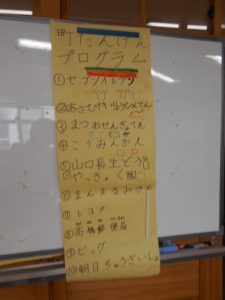 町たんけん
プログラム
①セブンイレブン
②あさひや
③まつおせんぎょてん
④こうみんかん
⑤山口長生どう
やっきょく
⑥まんまるみかん
⑦トヨタ
⑧高橋郵便局
⑨ビッグ
⑩朝日ちゅうざいしょ